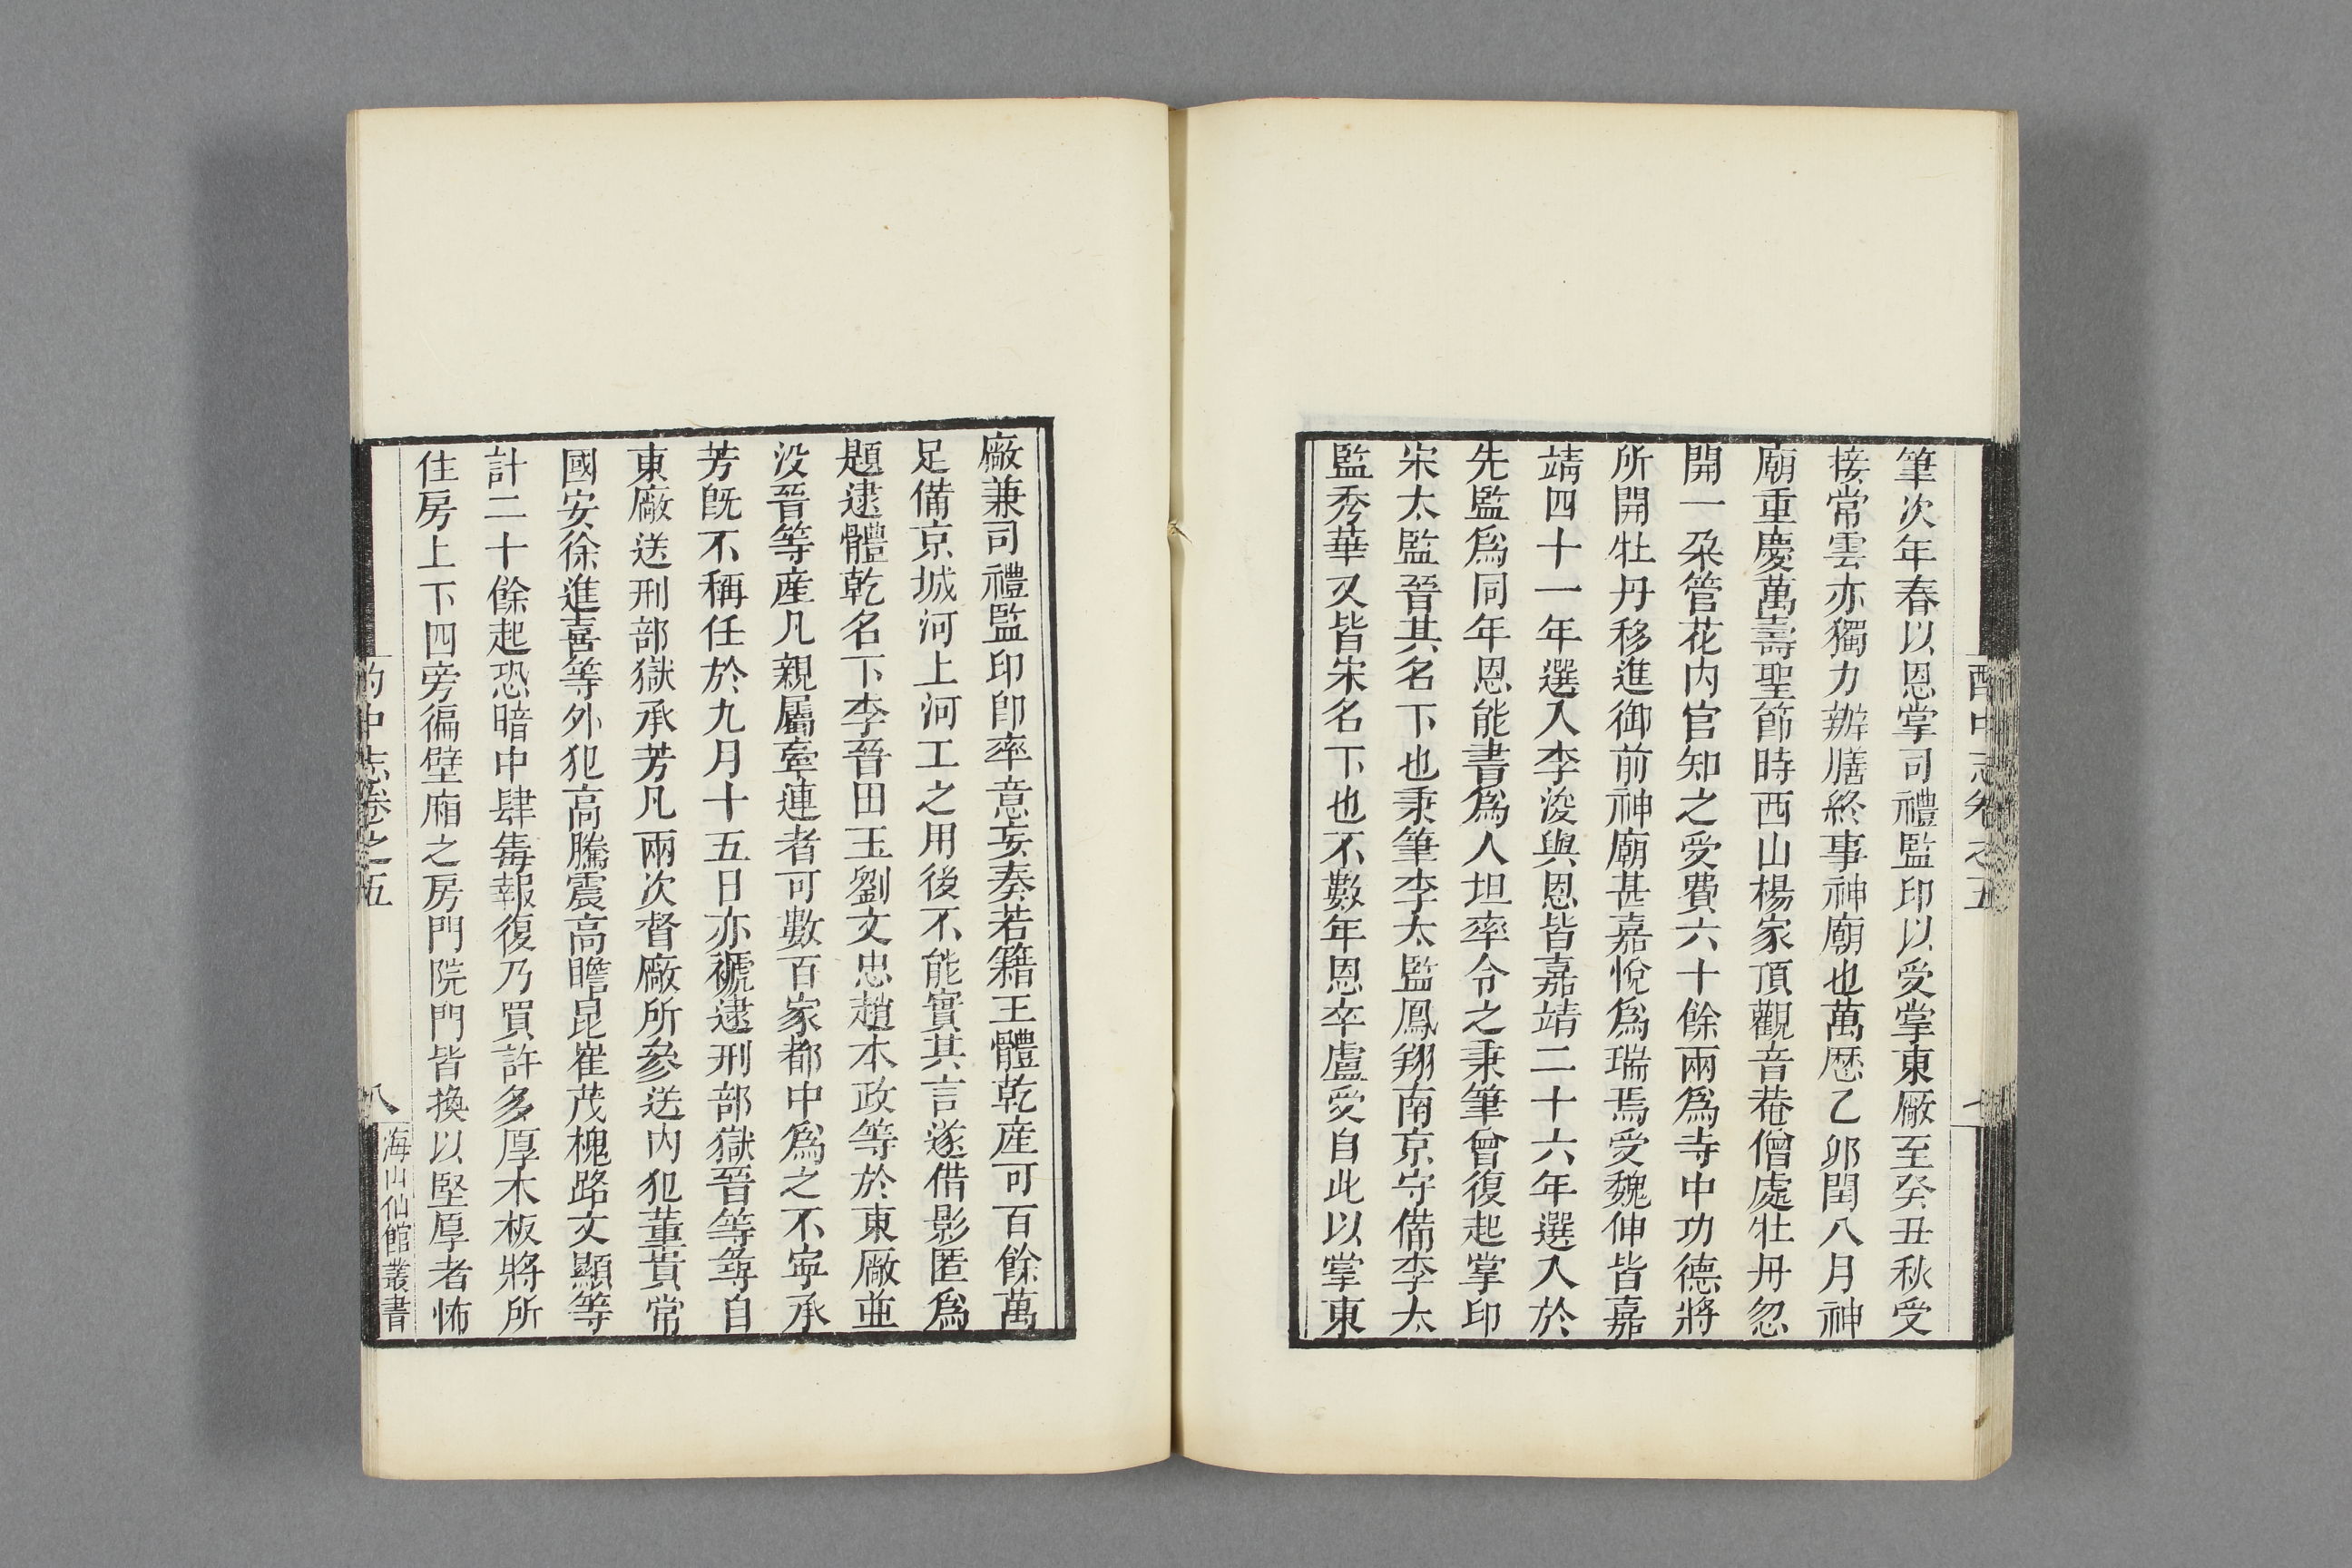 筆次年春以恩掌司禮監印以受掌東廠至癸丑秋受
接常雲亦獨力辦膳終事神廟也萬歷乙卯閏八月神
廟重慶萬壽聖節時西山楊家頂觀音菴僧處牡丹忽
開一朶管花内官知之受費六十餘兩爲寺中功德將
所開牡丹移進御前神廟甚嘉悅爲瑞焉受魏伸皆嘉
靖四十一年選入李浚與恩皆嘉靖二十六年選入於
先監爲同年恩能書爲人坦率令之秉筆曾復起掌印
宋太監晉其名下也秉筆李太監鳳翔南京守備李太
監秀華又皆宋名下也不數年恩卒盧受自此以掌東
酌中志卷之五
廠兼司禮監印卽率意妄奏若籍王體乾産可百餘萬
足備京城河上河工之用後不能實其言遂借影匿爲
題逮體乾名下李晉田玉劉文忠趙本政等於東廠並
没晉等産凡親屬牽連者可數百家都中爲之不寧承
芳旣不稱任於九月十五日亦褫逮刑部獄晉等等自
東廠送刑部獄承芳凡兩次督廠所參送内犯董貴常
國安徐進喜等外犯高騰震高瞻昆崔茂槐路文顯等
計二十餘起恐暗中肆毒報復乃買許多厚木板將所
住房上下四旁徧壁廂之房門院門皆換以堅厚者怖
酌中志卷之五
八
海山仙館叢書